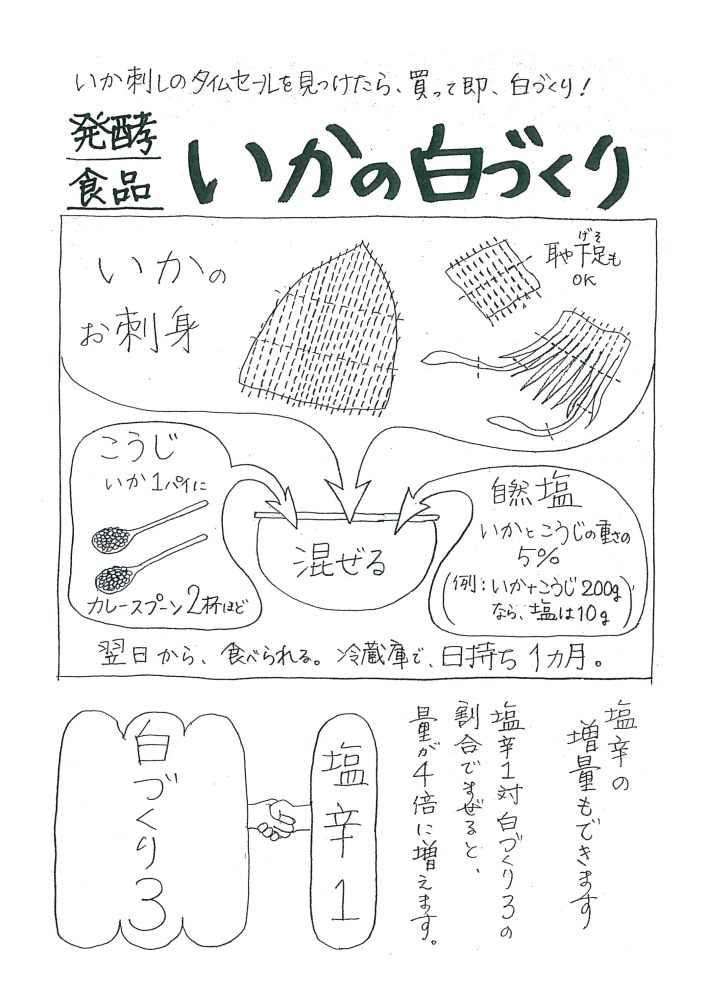 いか刺しのタイムセールを見つけたら、買って即、白づくり!
発酵
食品
いかの白づくり
いかの
お刺身
げそ
耳や下足も
OK
こうじ
いか1パイに
カレースプーン2杯ほど
混ぜる
自然塩
いかとこうじの重さの
5%
(例:いか+こうじ200g
なら、塩は10g)
翌日から、食べられる。冷蔵庫で、日持ち1カ月。
塩辛の
増量もできます
塩辛1対白づくり3の
割合でまぜると、
量が4倍に増えます。
塩辛1
白づくり3